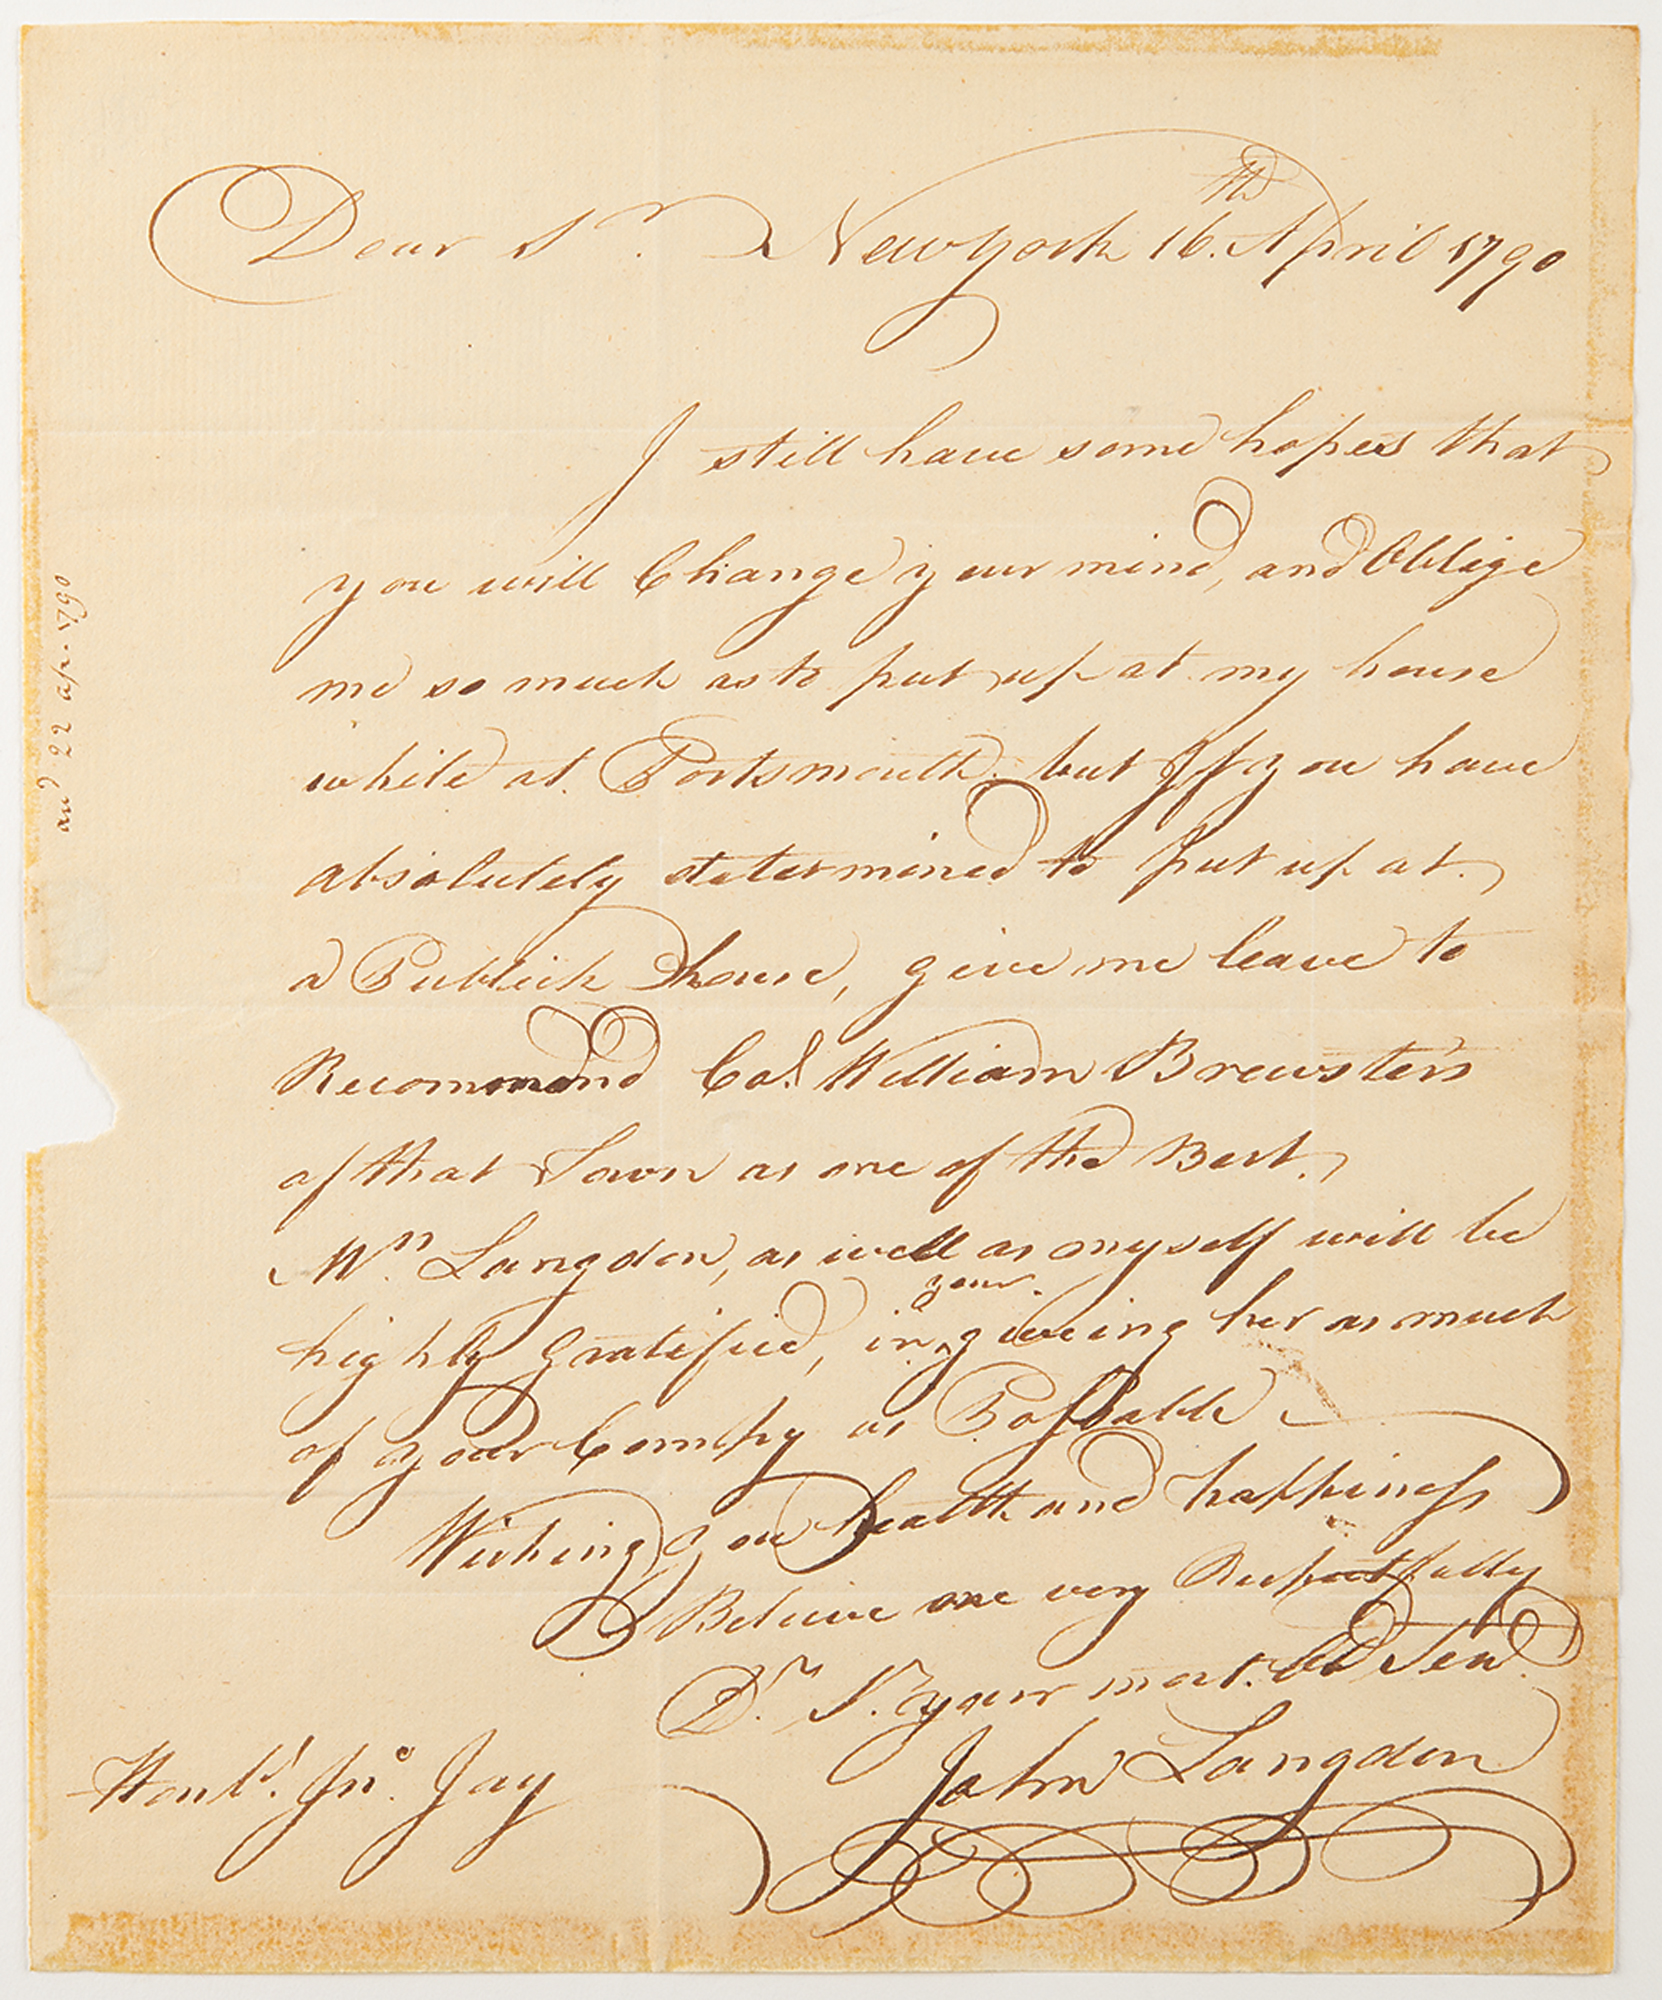 Dear Sr. New york 16.th April 1790
I still have some hopes that
you will Change your mind, and Oblige
me so much as to put up at my house
while at Portsmouth. but If you have
absolutely determined to put up at.
a Publick house, give me leave to
Recommend Col. William Brewster's
of that Town as one of the Best.
Mrs. Langdon, as well as myself will be
highly Gratified, in your giveing her as much
of your Compy as Possable
Wishing you health and happiness
Believe me very Respectfully
Dr. Sr. your most. Obd Serv.
John Langdon
Honbl. Jno. Jay
ansd 22 ap. 1790